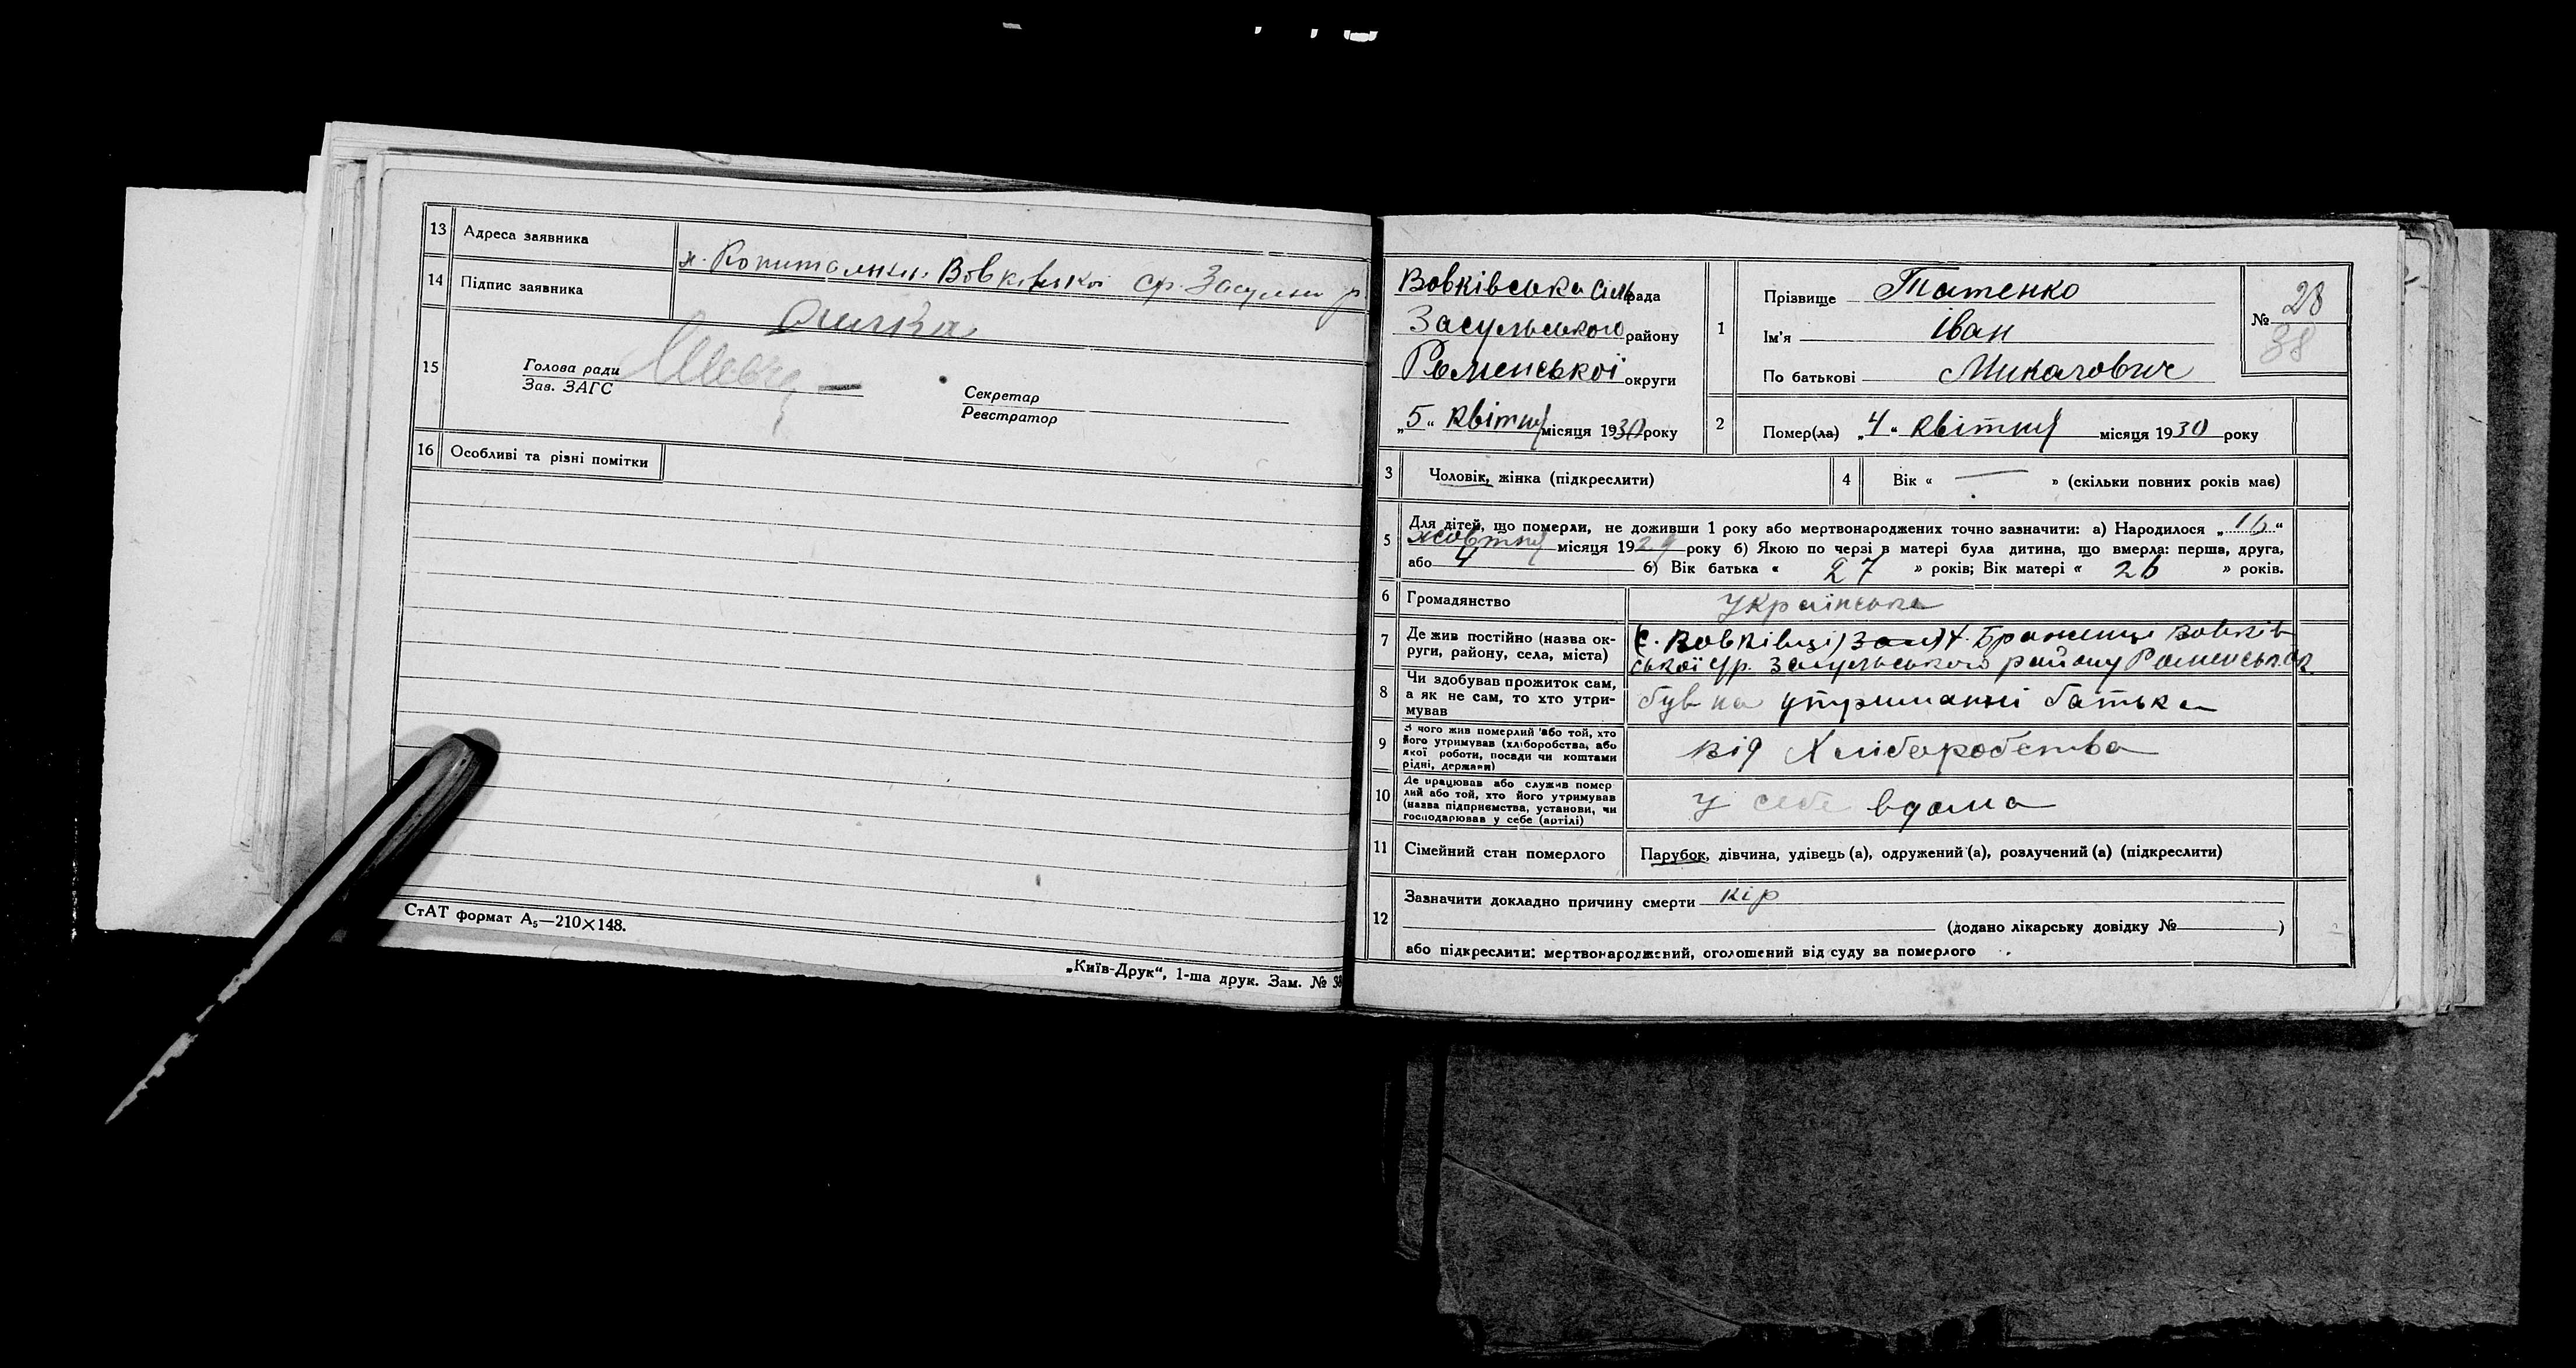 13 Адреса заявника
х. Копитальки Вовківської с/р. Засульськ р
14 Підпис заявника
15 Голова ради
Зав. ЗАГС
Секретар
Реєстратор
16 Особливі та різні помітки
СтАТ формат А₅—210×148.
„Київ-Друк“, 1-ша друк. Зам. № 38
Вовківська сільрада
Засульського району
Роменської округи
„5“ Квітня місяця 1930 року
1 Прізвище Татенко
Ім'я Іван
По батькові Микалович
№ 28
38
2 Помер(ла) „4“ Квітня місяця 1930 року
3 Чоловік, жінка (підкреслити)
4 Вік « — » (скільки повних років має)
5 Для дітей, що померли, не доживши 1 року або мертвонароджених точно зазначити: а) Народилося „16“
жовтня місяця 1929 року б) Якою по черзі в матері була дитина, що вмерла: перша, друга,
або 4 б) Вік батька « 27 » років; Вік матері « 26 » років.
6 Громадянство Українська
7 Де жив постійно (назва ок-
руги, району, села, міста)
(с. Вовківці) х. Браженці Вовків
ської с/р. Засульського району Роменськ ок
8 Чи здобував прожиток сам,
а як не сам, то хто утри-
мував
був на утриманні батька
9 З чого жив померлий або той, хто
його утримував (хліборобства, або
якої роботи, посади чи коштами
рідні, держави)
від Хліборобства
10 Де працював або служив помер
лий або той, хто його утримував
(назва підприємства, установи, чи
господарював у себе (артілі)
у себе вдома
11 Сімейний стан померлого
Парубок, дівчина, удівець (а), одружений (а), розлучений (а) (підкреслити)
12 Зазначити докладно причину смерти кір
(додано лікарську довідку № )
або підкреслити: мертвонароджений, оголошений від суду за померлого